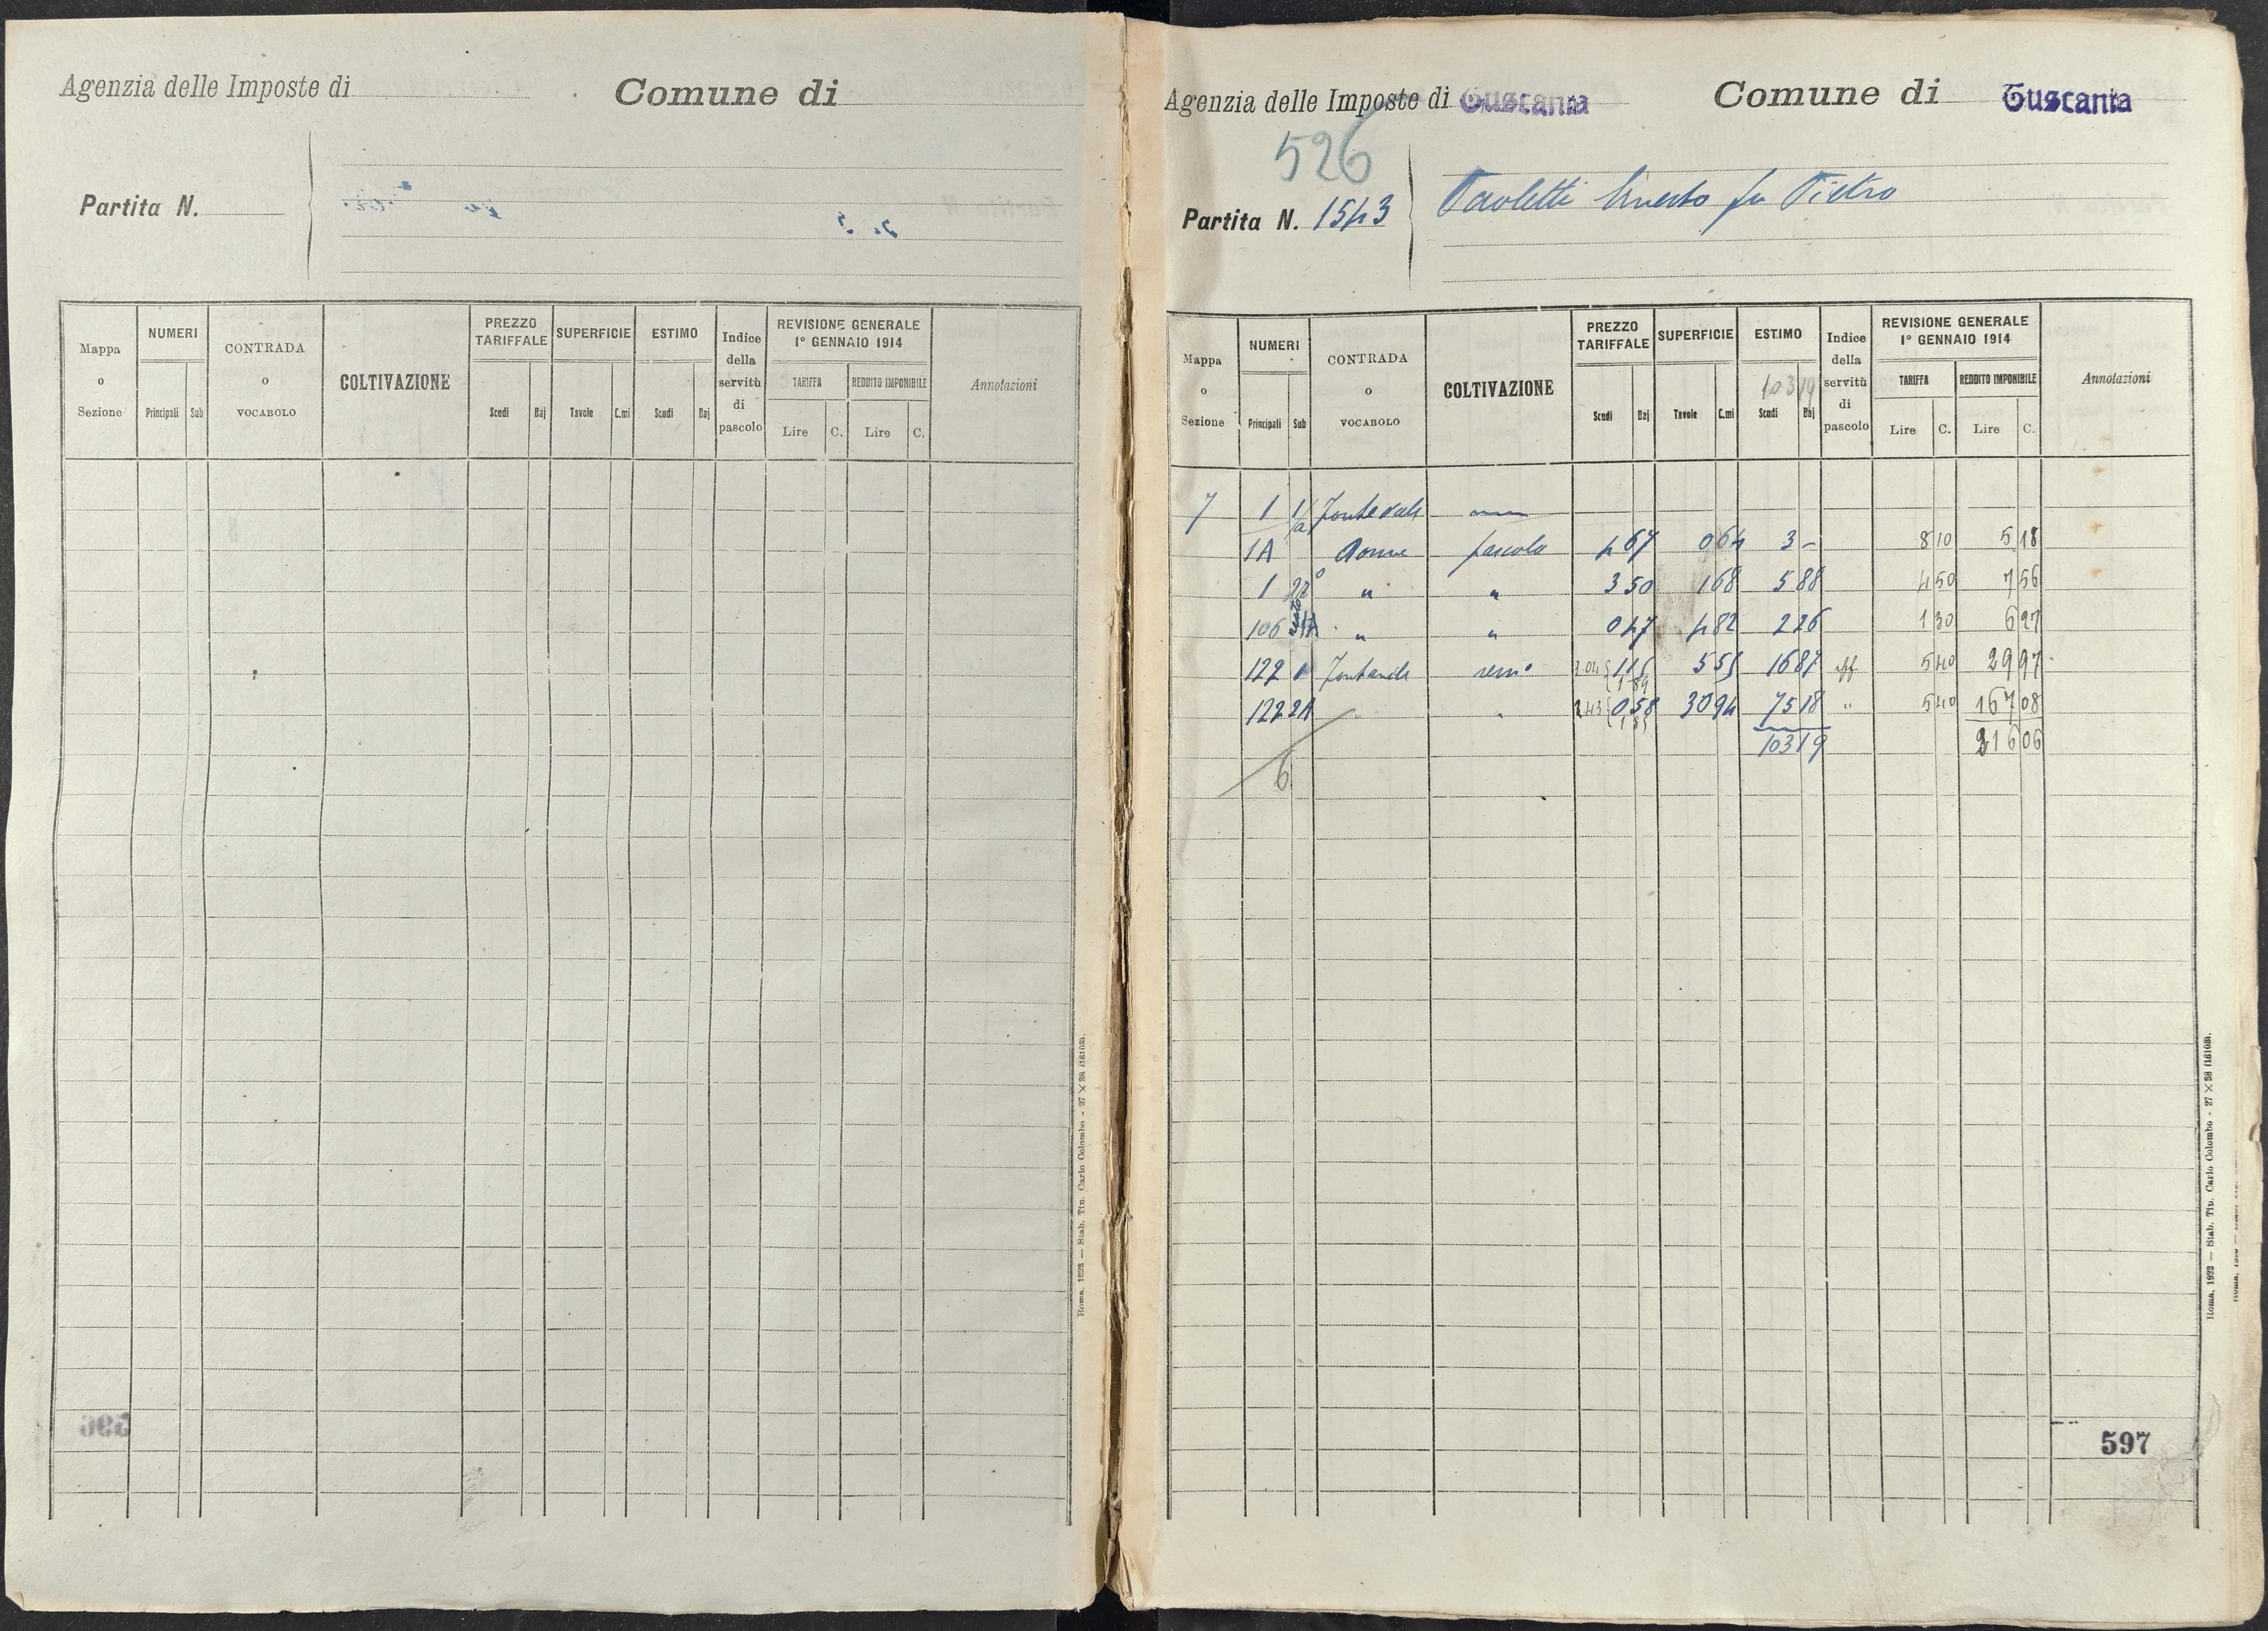 Agenzia delle Imposte di
Comune di
Partita N.
Mappa o Sezione
NUMERI
Principali Sub
CONTRADA o VOCABOLO
COLTIVAZIONE
PREZZO TARIFFALE
Scudi Baj
SUPERFICIE
Tavole C.mi
ESTIMO
Scudi Baj
Indice della servitù di pascolo
REVISIONE GENERALE 1° GENNAIO 1914
TARIFFA
Lire C.
REDDITO IMPONIBILE
Lire C.
Annotazioni
Roma, 1923 — Stab. Tip. Carlo Colombo - 27 × 38 (16103).
Agenzia delle Imposte di Tuscania
Comune di Tuscania
526
Partita N. 1543
Paoletti Ernesto fu Pietro
Mappa o Sezione
NUMERI
Principali Sub
CONTRADA o VOCABOLO
COLTIVAZIONE
PREZZO TARIFFALE
Scudi Baj
SUPERFICIE
Tavole C.mi
ESTIMO
103 19
Scudi Baj
Indice della servitù di pascolo
REVISIONE GENERALE 1° GENNAIO 1914
TARIFFA
Lire C.
REDDITO IMPONIBILE
Lire C.
Annotazioni
7 1 1/a
1A pascolo 4 67 0 64 3 - 8 10 5 18
1 " " 3 50 1 68 5 88 4 50 7 56
106 " " 0 47 4 82 2 26 1 30 6 27
122 1 Fontanile 1 15 5 55 16 87 5 40 29 97
1 89
122 2A 2 43 0 58 30 94 75 18 " 5 40 167 08
103 19 216 06
6
Roma, 1923 — Stab. Tip. Carlo Colombo - 27 × 38 (16103).
597